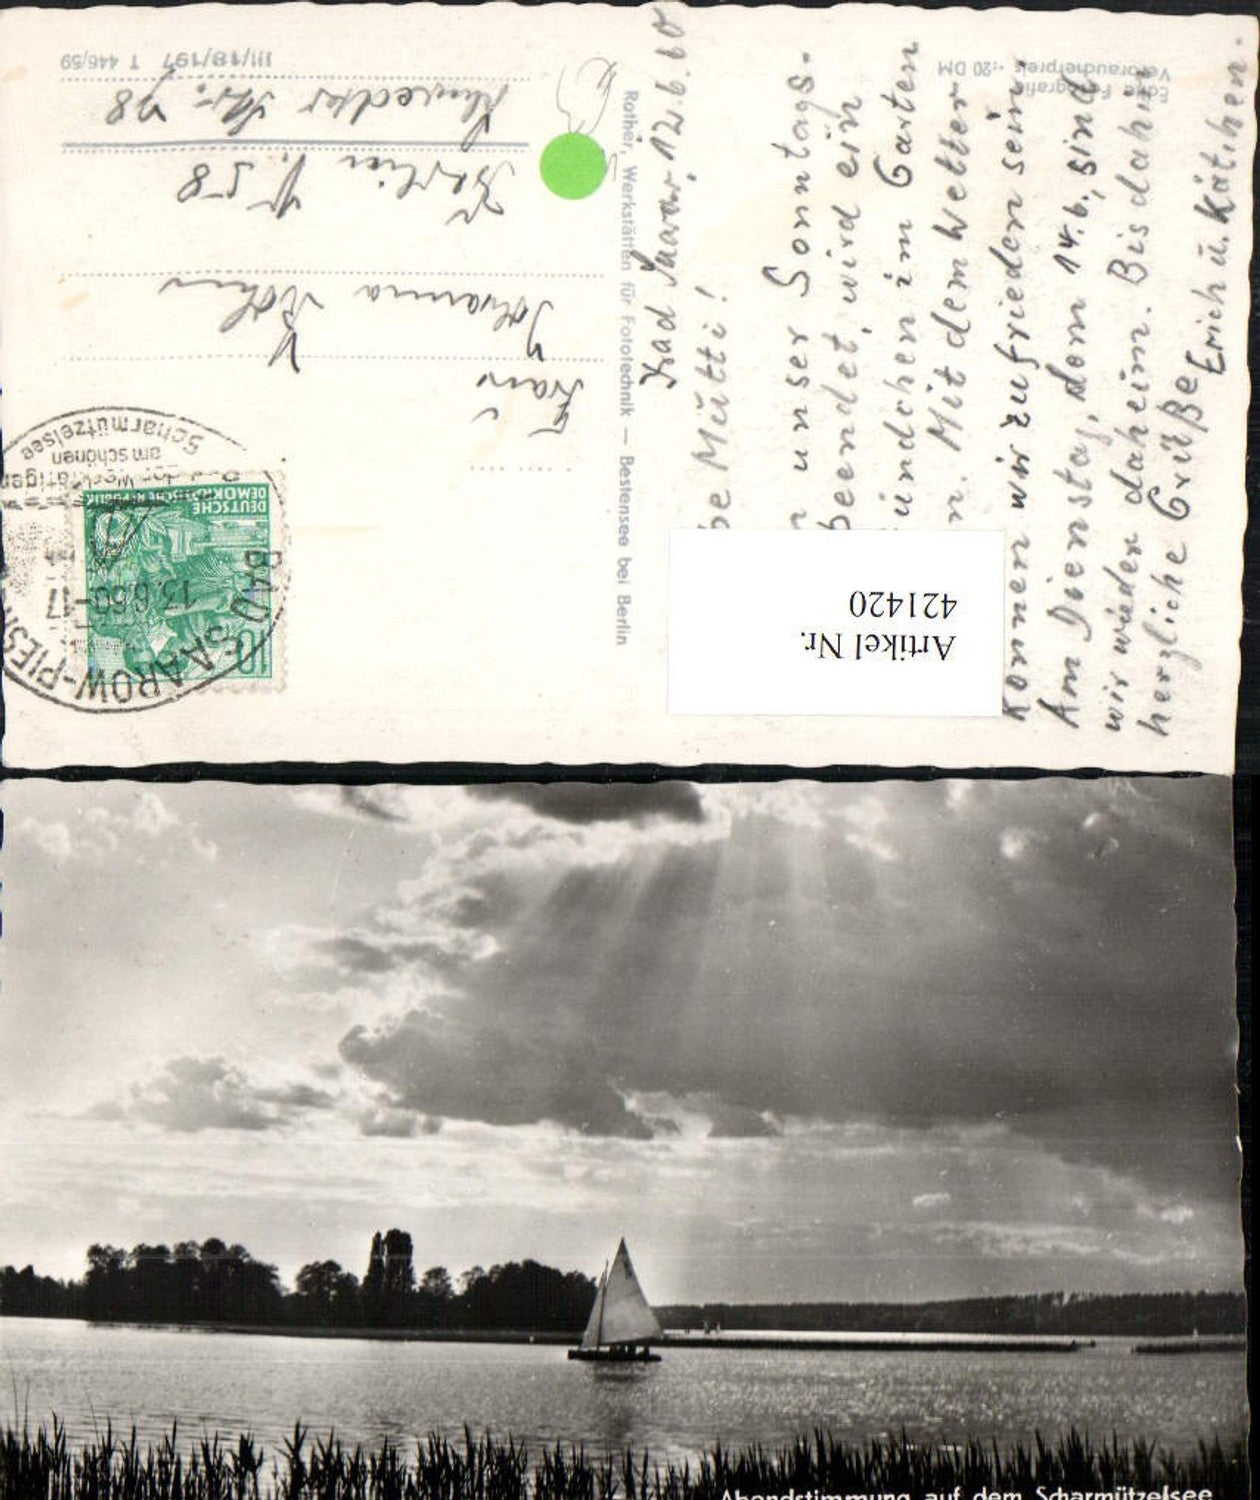 Bad Saarow, 12.6.60
Mutti!
unser Sonntags-
beendet, wird ein
ündchen im Garten
Mit dem Wetter
können wir zufrieden sein.
Am Dienstag, dem 14.6., sind
wir wieder daheim. Bis dahin
herzliche Grüße
Erich u. Käthen.
Echte Fotografie
Verbraucherpreis -,20 DM
Artikel Nr.
421420
Rother, Werkstätten für Fototechnik — Bestensee bei Berlin
10
DEUTSCHE
DEMOKRATISCHE REPUBLIK
BAD SAAROW-PIES
13.6.60-17
am schönen
Scharmützelsee
Frau
Johanna
Berlin N. 58
Str. 98
III/18/197 T 446/59
Abendstimmung auf dem Scharmützelsee